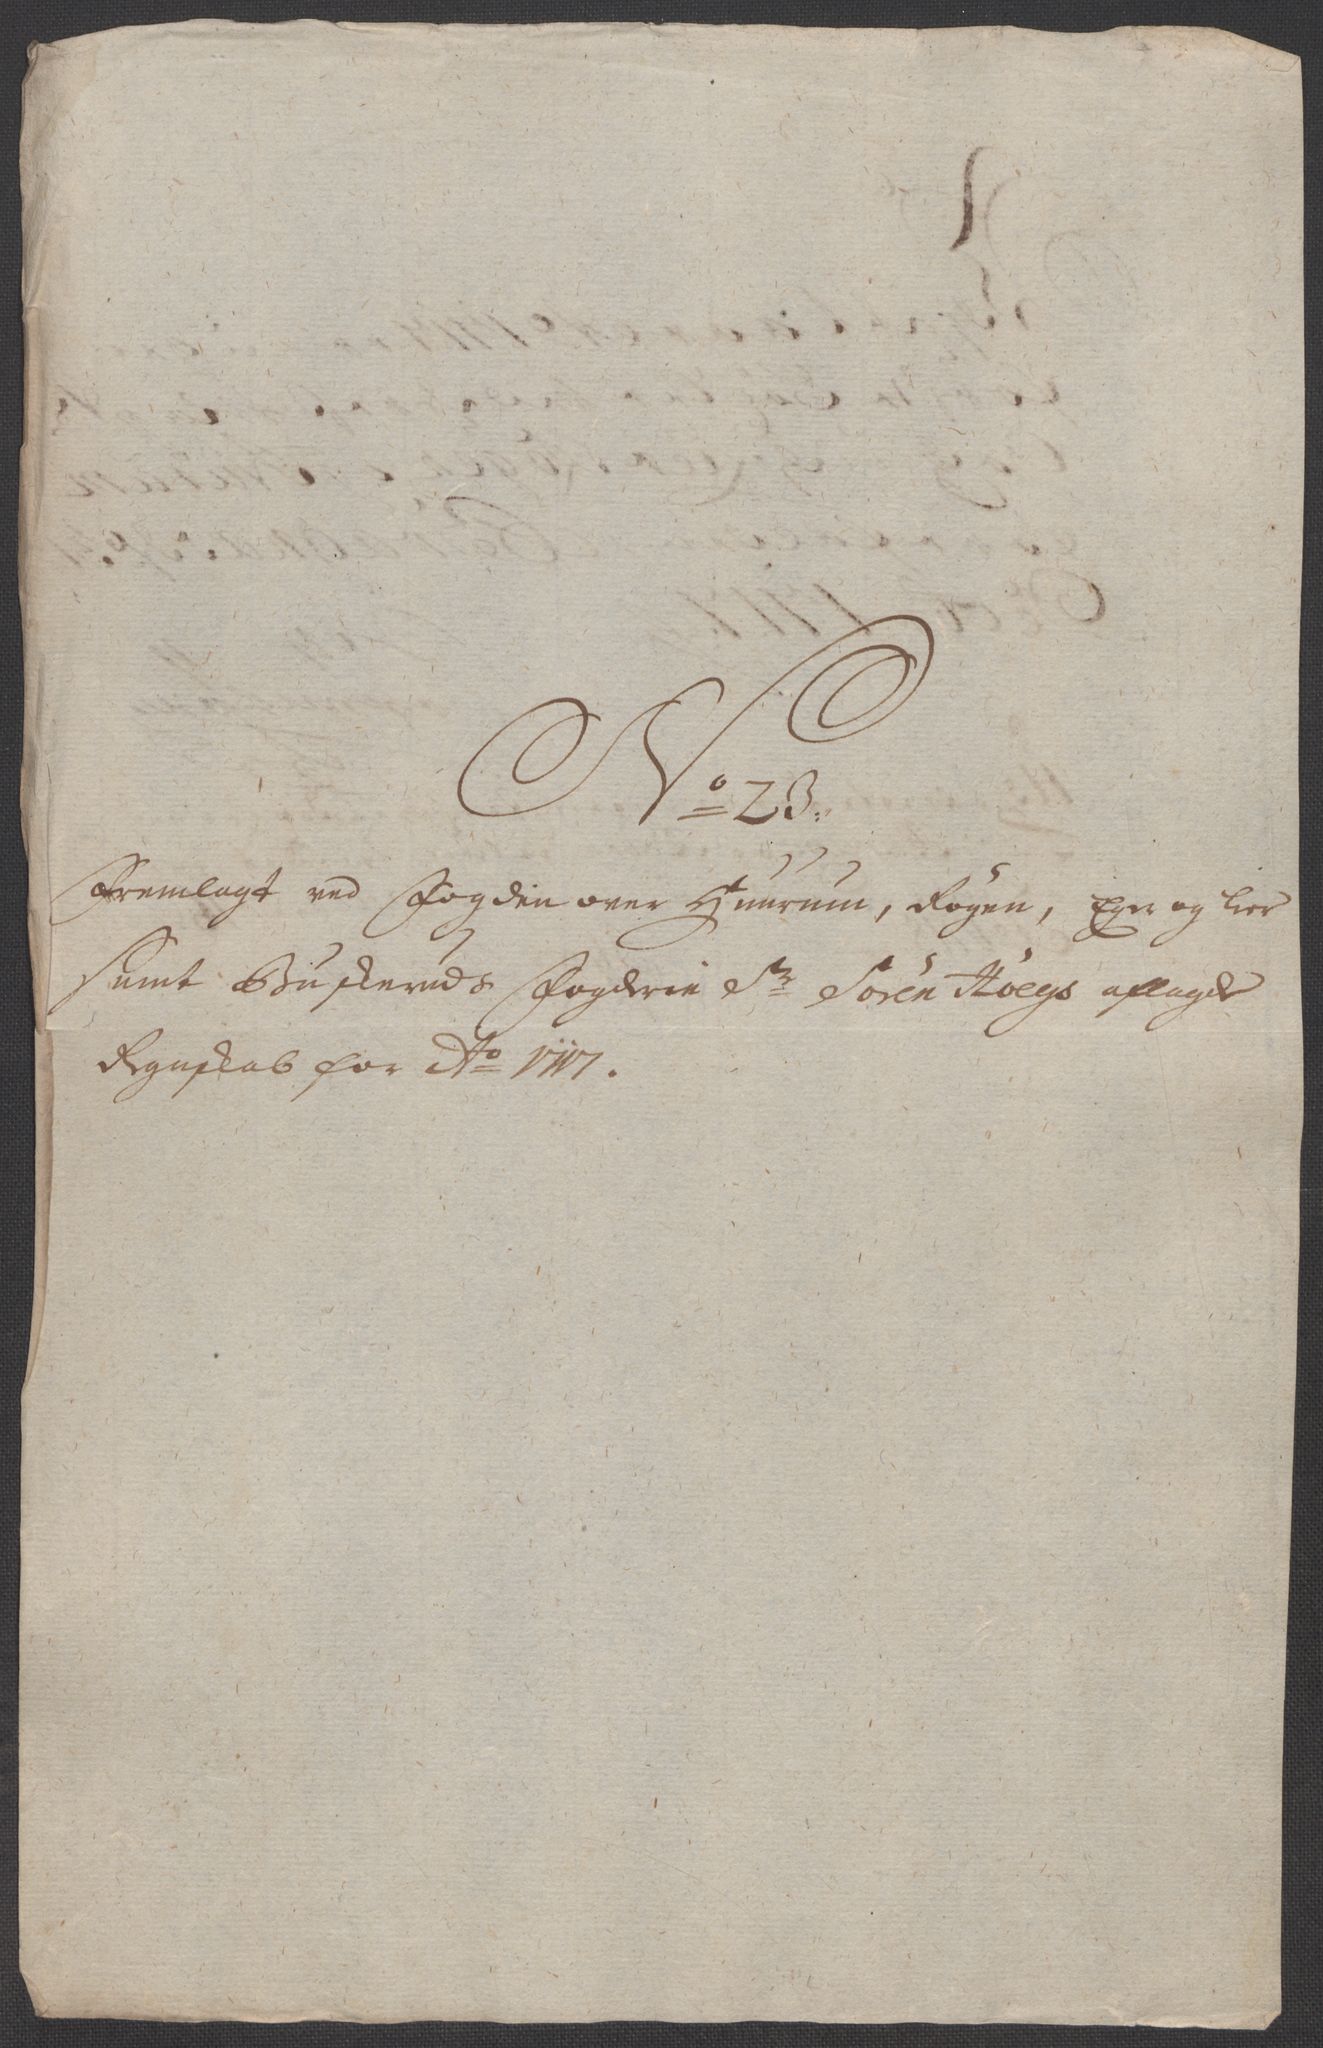 No 23.
Fremlagt ved Fogden over Huurum, Røgen, Eger og Lier
samt Buskeruds Fogderie Sr Søren Høegs aflagde
Regnskab for Ao 1717.